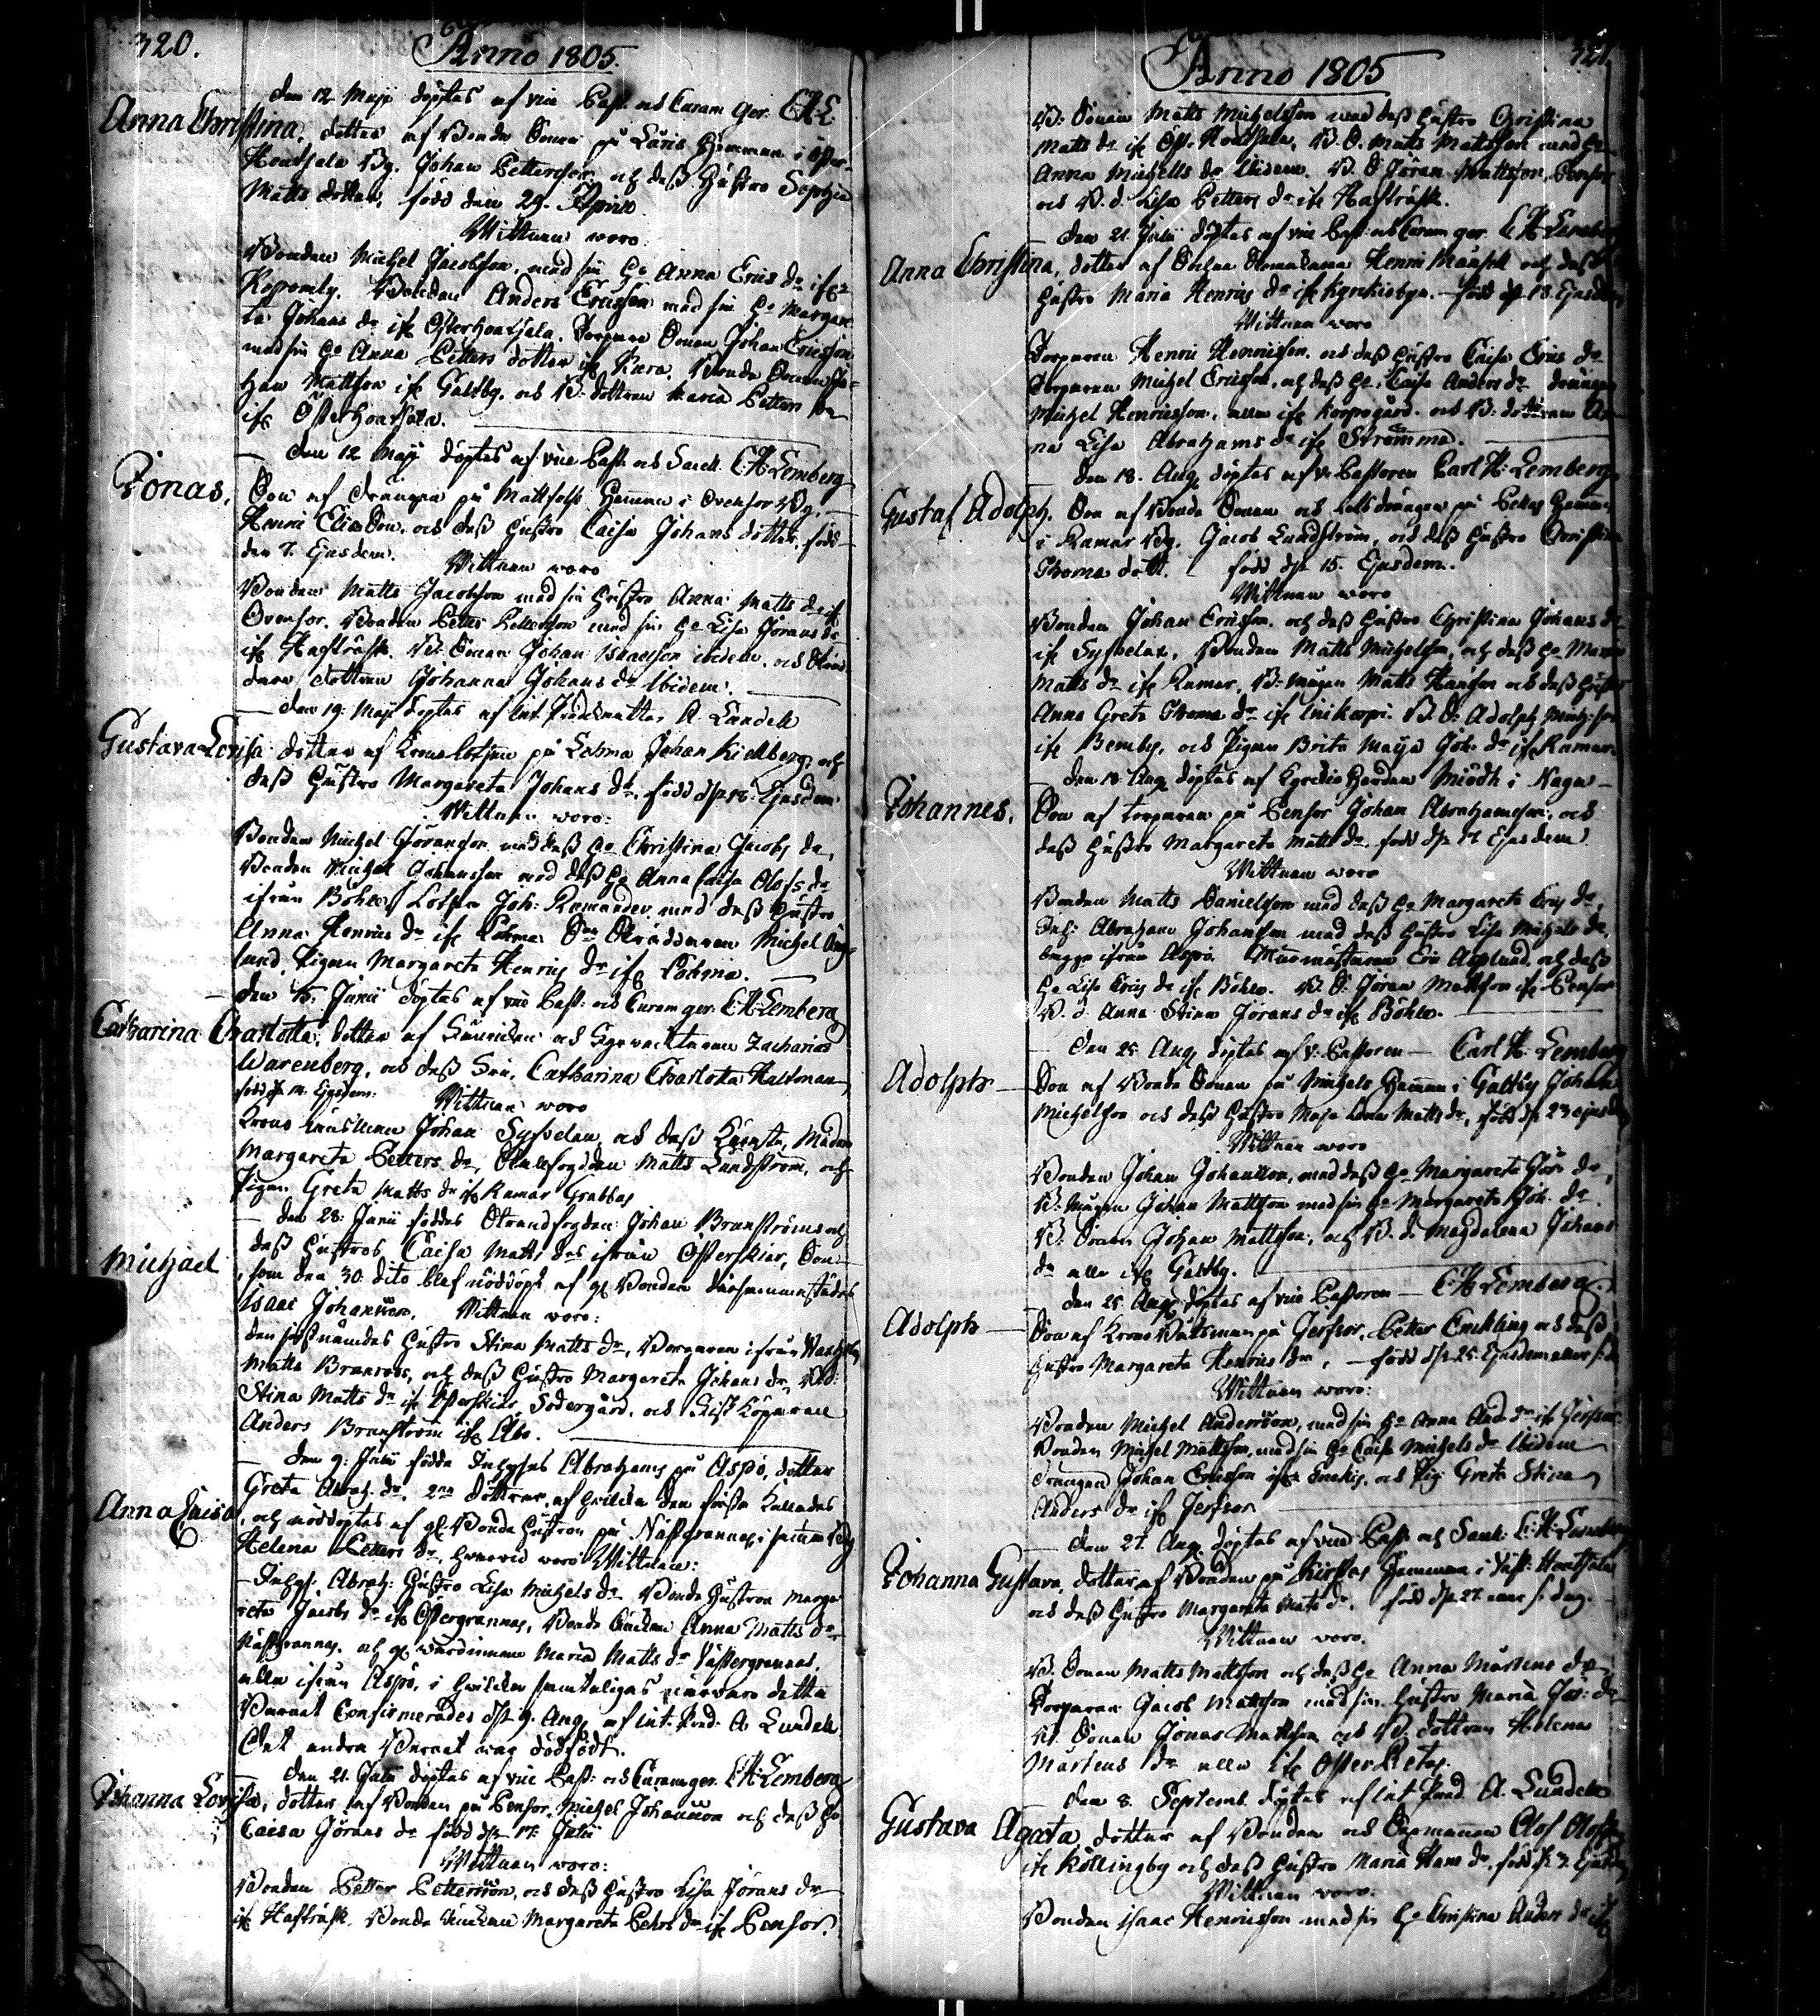 320.
Anno 1805.
Den 12 Maji döptes af vice Past. och Curam Ger. CHL
Anna Christina, dotter af Bonde Sonen på Laris Hemman i Öster
Houtsala By. Johan Pettersson och dess Hustro Sophia
Matts dotter, född den 29. Aprill
Wittnen woro
Bonden Michel Jacobsson, med sin Ho Anna Erics dr ifr
Korpoby. Bonden Anders Ericsson med sin Ho Margare
ta Johans dr ifr Österhoutsala. Torpare Sonen Johan Ericsson
med sin Ho Anna Petters dotter ifr Bonde Sonen Jo
han Mattsson ifr Galtby. och B: dottren Maria Petters dr
ifr Österhoutsala.
Den 12 Maji döptes af vice Past. och Sacell. C.H. Lemberg
Jonas, Son af Drängen på Hemman i Ovensor By.
Henric Eliæ Son, och dess Hustro Caisa Johans dotter, född
den 7. Ejusdem.
Wittnen woro
Bonden Matts Jacobsson med sin Hustro Anna Matts dr ifr
Ovensor. Bonden Petter Pettersson med sin Ho Lisa Jörans dr
ifr Hafträsk. B. Sonen Johan Isaacsson ibidem, och
dottren Johanna Johans dr Ibidem.
Den 19. Maji döptes af Int. Predikanten A. Lundell
Gustava Lovisa dotter af Krono Lotsen på Lohma Johan Kiellberg, och
dess Hustro Margareta Johans dr. född d. 18. Ejusdem
Wittnen woro:
Bonden Michel Göransson med dess Ho Christina Jacobs dr,
Bonden Michel Johansson med dess Ho Anna Caisa Olofs dr
ifrån Böhle, Lotsen Joh: Ramander med dess Hustro
Anna Henrics dr ifr Lohma. Michel
lund, Pigan Margareta Henrics dr ifr Lohma.
Den 15. Junii döptes af vice Past. och Curam ger. C.H. Lemberg
Catharina Charlotta, dotter af och Zacharias
Warenberg, och dess Fru, Catharina Charlotta Haldman
född d. Ejusdem.
Wittnen woro
Krono Länsman Johan Sysvelen, och dess Madame
Margareta Petters dr, Matts Lundström, och
Pigan Greta Matts dr ifr Ramar Grabbas
Den 28. Junii föddes Strandfogden Johan Branströms och
dess Hustros Caisa Matts drs ifrån Österskiär, Son
Michael, som den 30. dito blef nöddöpt af gl. Bonden dersammastädes
Isaac Johansson. Wittnen woro:
den förstnämdes Hustro Stina Matts dr, Borgaren ifrån
Matts Branroos, och dess Hustro Margareta Johans dr,
Stina Matts dr ifr Österskiär, Södergård, och
Anders Branström ifr Åbo.
Den 9. Julii födde Inhyses Abrahams på Aspö, dotter
Greta Abrah. dr, 2ne döttrar, af hvilka den första kallades
Anna Caisa, och nöddöptes af gl. Bonde Hustron på Näsgrannas
Helena Petters dr, hvarvid woro Wittnen:
Inhys. Abrah: Hustro Lisa Michels dr. Bonde Hustron Marga
reta Jacobs dr ifr Östergrannas, Bonde Anna Matts dr
Näsgrannas, och gl. wärdinnan Maria Matts dr Västergrannas,
alla ifrån Aspö, i hvilkas samteligas närvaro detta
Barnet Confirmerades d. 9. Aug. af Int. Pred. A. Lundell.
Det andra Barnet war dödfödt.
Den 21. Julii döptes af vice Past. och Curam ger. C.H. Lemberg
Johanna Lovisa, dotter af Bonden på Pensor, Michel Johansson och dess Ho
Caisa Jörans dr född d. 17. Julii
Wittnen woro:
Bonden Petter Pettersson, och dess Hustro Lisa Jörans dr
ifr Hafträsk. Bonde Enkan Margareta Pehrs dr ifr Pensor.
321.
Anno 1805
B. Sonen Matts Michelsson med dess Hustro Christina
Matts dr ifr Öst. Houtsala, B. S. Matts Mattsson med Ho
Anna Michells dr Ibidem. B. S. Jöran Mattsson, Pensor
och B. d. Lisa Petters dr ifr Hafträsk.
Den 21. Julii döptes af vice Past. och Curam ger. C.H. Lemberg
Anna Christina, dotter af Henric Månsell och dess
Hustro Maria Henrics dr ifr Kyrkiobyn. född d. 18. Ejusdem
Wittnen woro
Torparen Henric Henricsson, och dess Hustro Caisa Erics dr
Torparen Michel Ericsson, och dess Ho Caisa Anders dr drängen
Michel Henricsson, alla ifr Korpogård. och B: dottren An
na Lisa Abrahams dr ifr Strömma.
Den 18. Aug. döptes af v. Pastoren Carl H: Lemberg
Gustaf Adolph, Son af Bonde Sonen och Lotsdrängen på Hemman
i Ramar By, Jacob Lundström, och dess Hustro Christina
Thomæ dott. född d. 15. Ejusdem.
Wittnen woro
Bonden Johan Ericsson, och dess Hustro Christina Johans dr
ifr Sysvelax, Bonden Matts Michelsson, och dess Ho Maria
Matts dr ifr Ramar, B. Mågen Matts Hansson och dess Hustro
Anna Greta Thomæ dr ifr Lillkorpo. B. S. Adolph Mich:son
ifr Bemby, och Pigan Brita Maja Joh. dr ifr Ramar.
Den 18. Aug. döptes af Kyrkio Herden Miödh i Nagu
Johannes. Son af Torparen på Pensor Johan Abrahamsson, och
dess Hustro Margareta Matts dr. född d. 17 Ejusdem
Wittnen woro
Bonden Matts Danielsson med dess Ho Margareta Erics dr,
Inh: Abraham Johansson med dess Hustro Lisa Michels dr,
begge ifrån Aspö. Murmästaren Eric Asplund, och dess
Ho Lisa Erics dr ifr Böhle. B. S. Jöran Mattsson ifr Pensor
B. d. Anna Stina Jörans dr ifr Böhle.
Den 25. Aug. döptes af v. Pastoren Carl H. Lemberg
Adolph Son af Bonde Sonen på Michels Hemman i Galtby Johan
Michelsson och dess Hustro Maja Lena Matts dr, född d. 23 ejusdem
Wittnen woro
Bonden Johan Johansson, med dess Ho Margareta Joh: dr,
B. Mågen Johan Mattsson med sin Ho Margareta Joh. dr
B. Sonen Johan Mattsson, och B. d. Magdalena Johans
dr alla ifr Galtby.
Den 25. Aug. döptes af vice Pastoren C.H. Lemberg.
Adolph Son af Krono Båtsman på Jerfsor, Petter Enckling och dess
Hustro Margareta Henrics dr, född d. 25. Ejusdem
Wittnen woro:
Bonden Michel Andersson, med sin Ho Anna And. dr ifr Jerfsor
Bonden Michel Mattsson, med sin Ho Caisa Michels dr Ibidem
Drängen Johan Ericsson och Pig. Greta Stina
Anders dr ifr Jerfsor.
Den 27. Aug. döptes af vice Past. och Sacell. C.H. Lemberg
Johanna Gustava, dotter af Bonden på Hemman i Väst: Houtsala
och dess Hustro Margareta Mats dr. född d. 27.
Wittnen woro.
B. Sonen Matts Mattsson och dess Ho Anna Mårtens dr
Torparen Jacob Mattsson med sin Hustro Maria Joh: dr
B. Sonen Jonas Mattsson och B. dottren Helena
Mårtens dr alla ifr Öster Retas.
Den 8. Septemb. döptes af Int. Pred. A. Lundell
Gustava Agata, dotter af Bonden och Olof Olofsson
ifr Köllingby och dess Hustro Maria Hans dr, född d. 7. Ejusdem
Wittnen woro.
Bonden Isaac Henricsson med sin Ho Christina Anders dr ifr